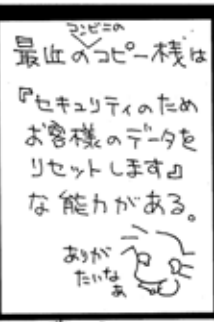 コンビニの
最近のコピー機は
『セキュリティのため
お客様のデータを
リセットします』
な能力がある。
ありが
たいな
ぁ